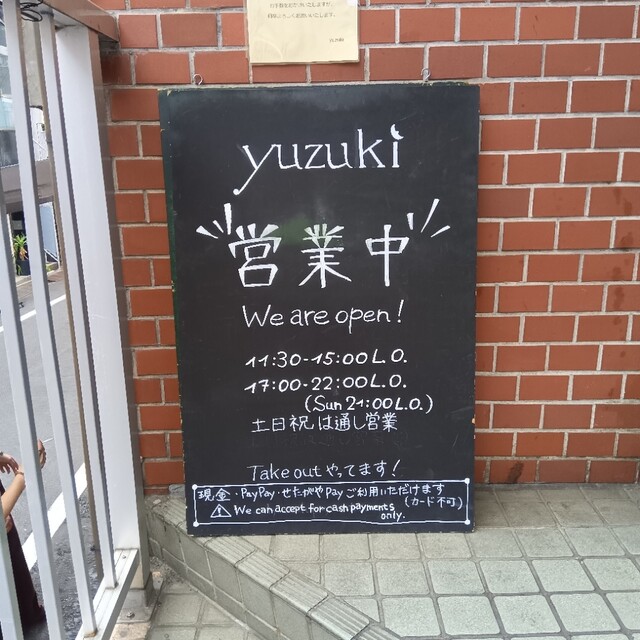 yuzuki
営業中
We are open!
11:30-15:00 L.O.
17:00-22:00 L.O.
(Sun 21:00 L.O.)
土日祝は通し営業
Take out やってます!
現金・PayPay・せたがやPayご利用いただけます
(カード不可)
We can accept for cash payments
only.